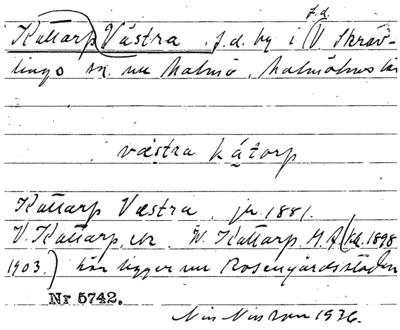 f.d.
Kattarp Västra f.d. by i V. Skräv-
linge sn. nu Malmö, Malmöhus län
västra kåtorp
Kattarp Västra jb. 1881.
V. Kattarp, V. Kattarp, H. A. (kk. 1898
1903.) här ligger nu Rosengårdsstaden
Nr 5742.
Nils Nilsson 1936.